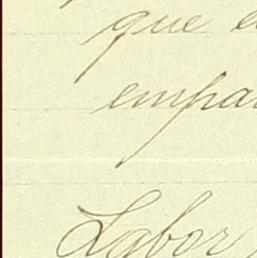 que
empa
Labor